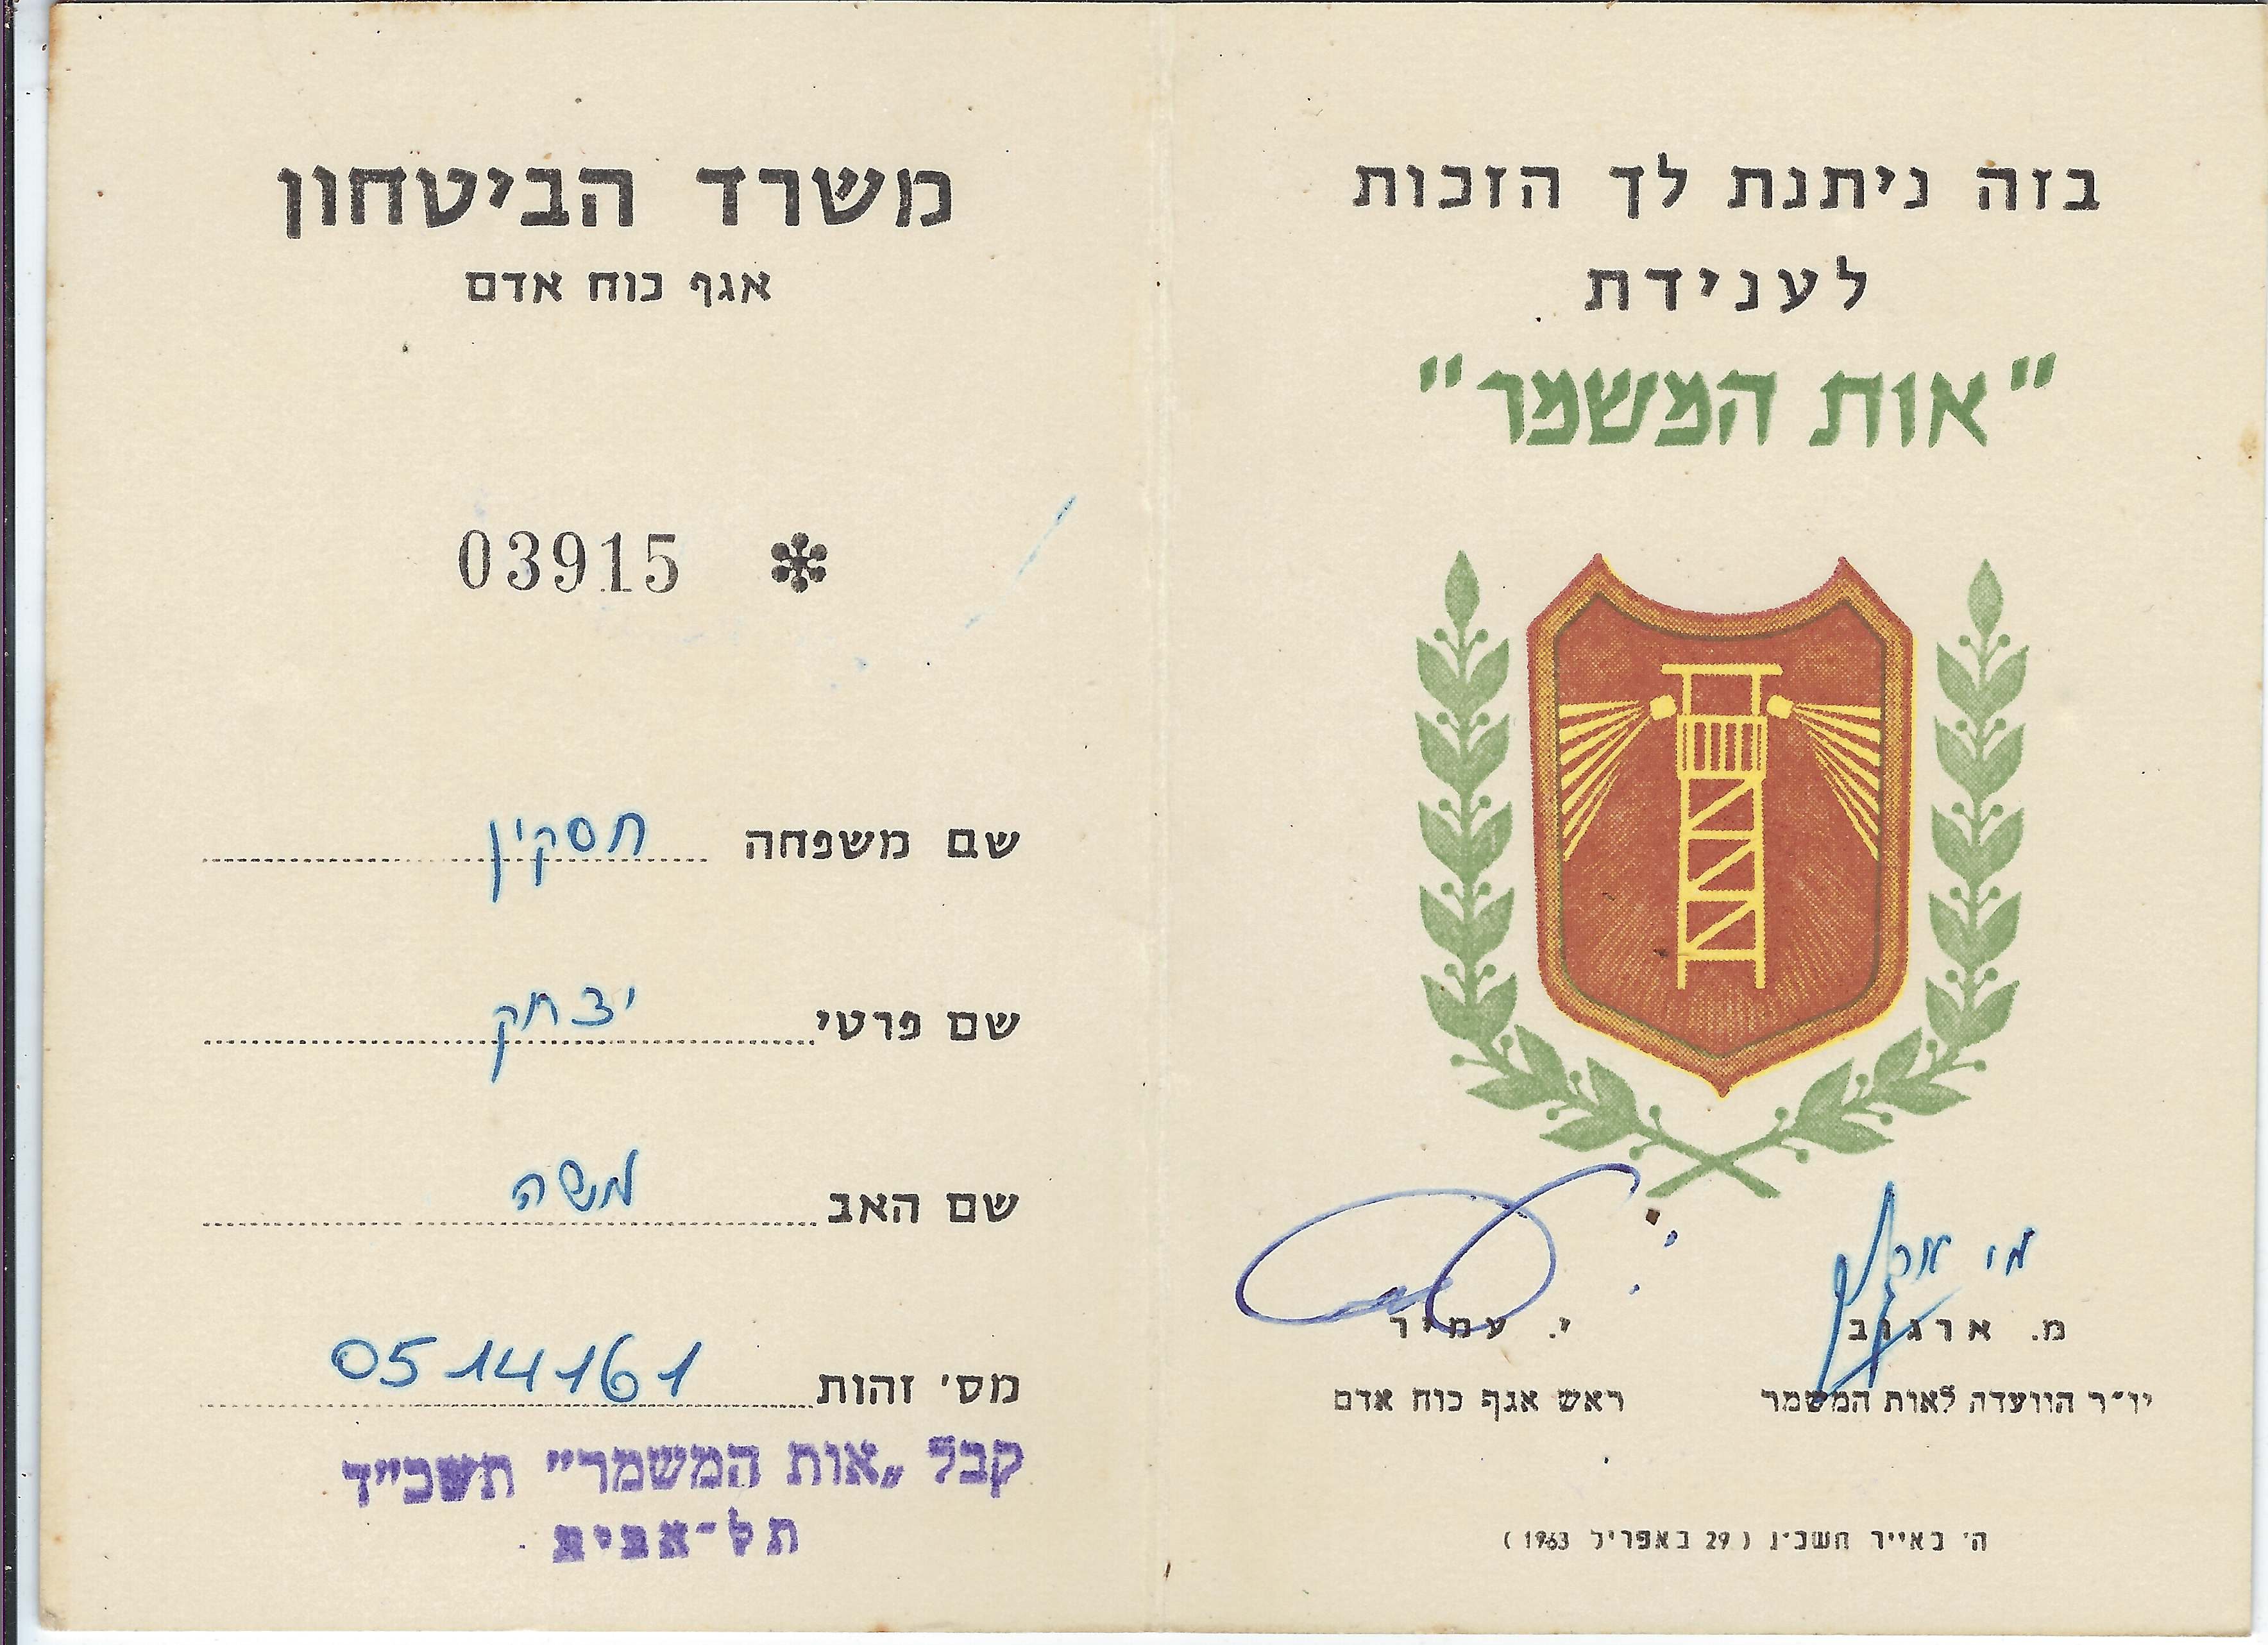 בזה ניתנת לך הזכות
לענידת
"אות המשמר"
מ. ארגוב
יו״ר הוועדה לאות המשמר
י. עמיר
ראש אגף כוח אדם
ה׳ באייר תשכ״ג (29 באפריל 1963)
משרד הביטחון
אגף כוח אדם
* 03915
שם משפחה חסקין
שם פרטי יצחק
שם האב משה
מס׳ זהות 0514161
קבל „אות המשמר״ תשכ״ד
תל-אביב